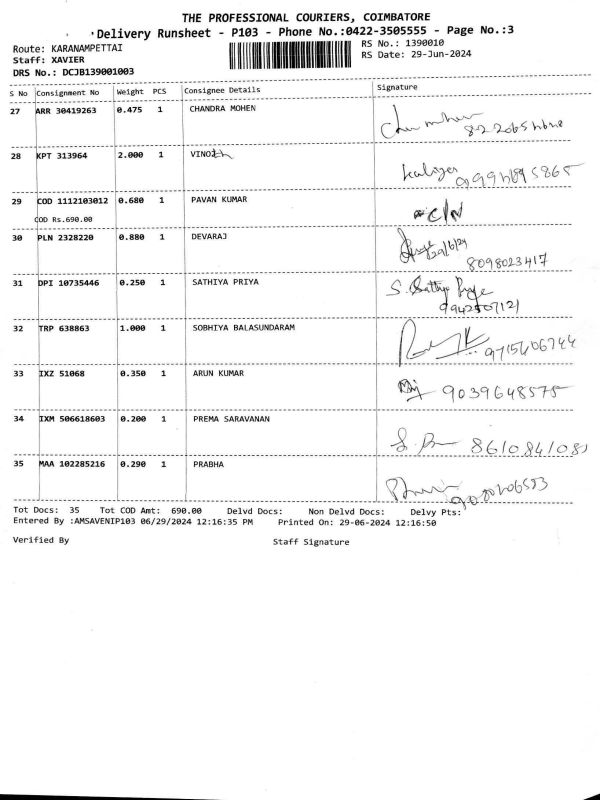 THE PROFESSIONAL COURIERS, COIMBATORE
Delivery Runsheet - P103 - Phone No.:0422-3505555 - Page No.:3
Route: KARANAMPETTAI
RS No.: 1390010
Staff: XAVIER
RS Date: 29-Jun-2024
DRS No.: DCJB139001003
S No Consignment No Weight PCS Consignee Details Signature
27 ARR 30419263 0.475 1 CHANDRA MOHEN
28 KPT 313964 2.000 1 VINOth
29 COD 1112103012 0.680 1 PAVAN KUMAR
COD Rs.690.00
C/N
30 PLN 2328220 0.880 1 DEVARAJ
29/6/24
8098023417
31 DPI 10735446 0.250 1 SATHIYA PRIYA
S. Sathya Priya
9942507121
32 TRP 638863 1.000 1 SOBHIYA BALASUNDARAM
33 IXZ 51068 0.350 1 ARUN KUMAR
9039648575
34 IXM 506618603 0.200 1 PREMA SARAVANAN
35 MAA 102285216 0.290 1 PRABHA
Tot Docs: 35 Tot COD Amt: 690.00 Delvd Docs: Non Delvd Docs: Delvy Pts:
Entered By :AMSAVENIP103 06/29/2024 12:16:35 PM Printed On: 29-06-2024 12:16:50
Verified By Staff Signature